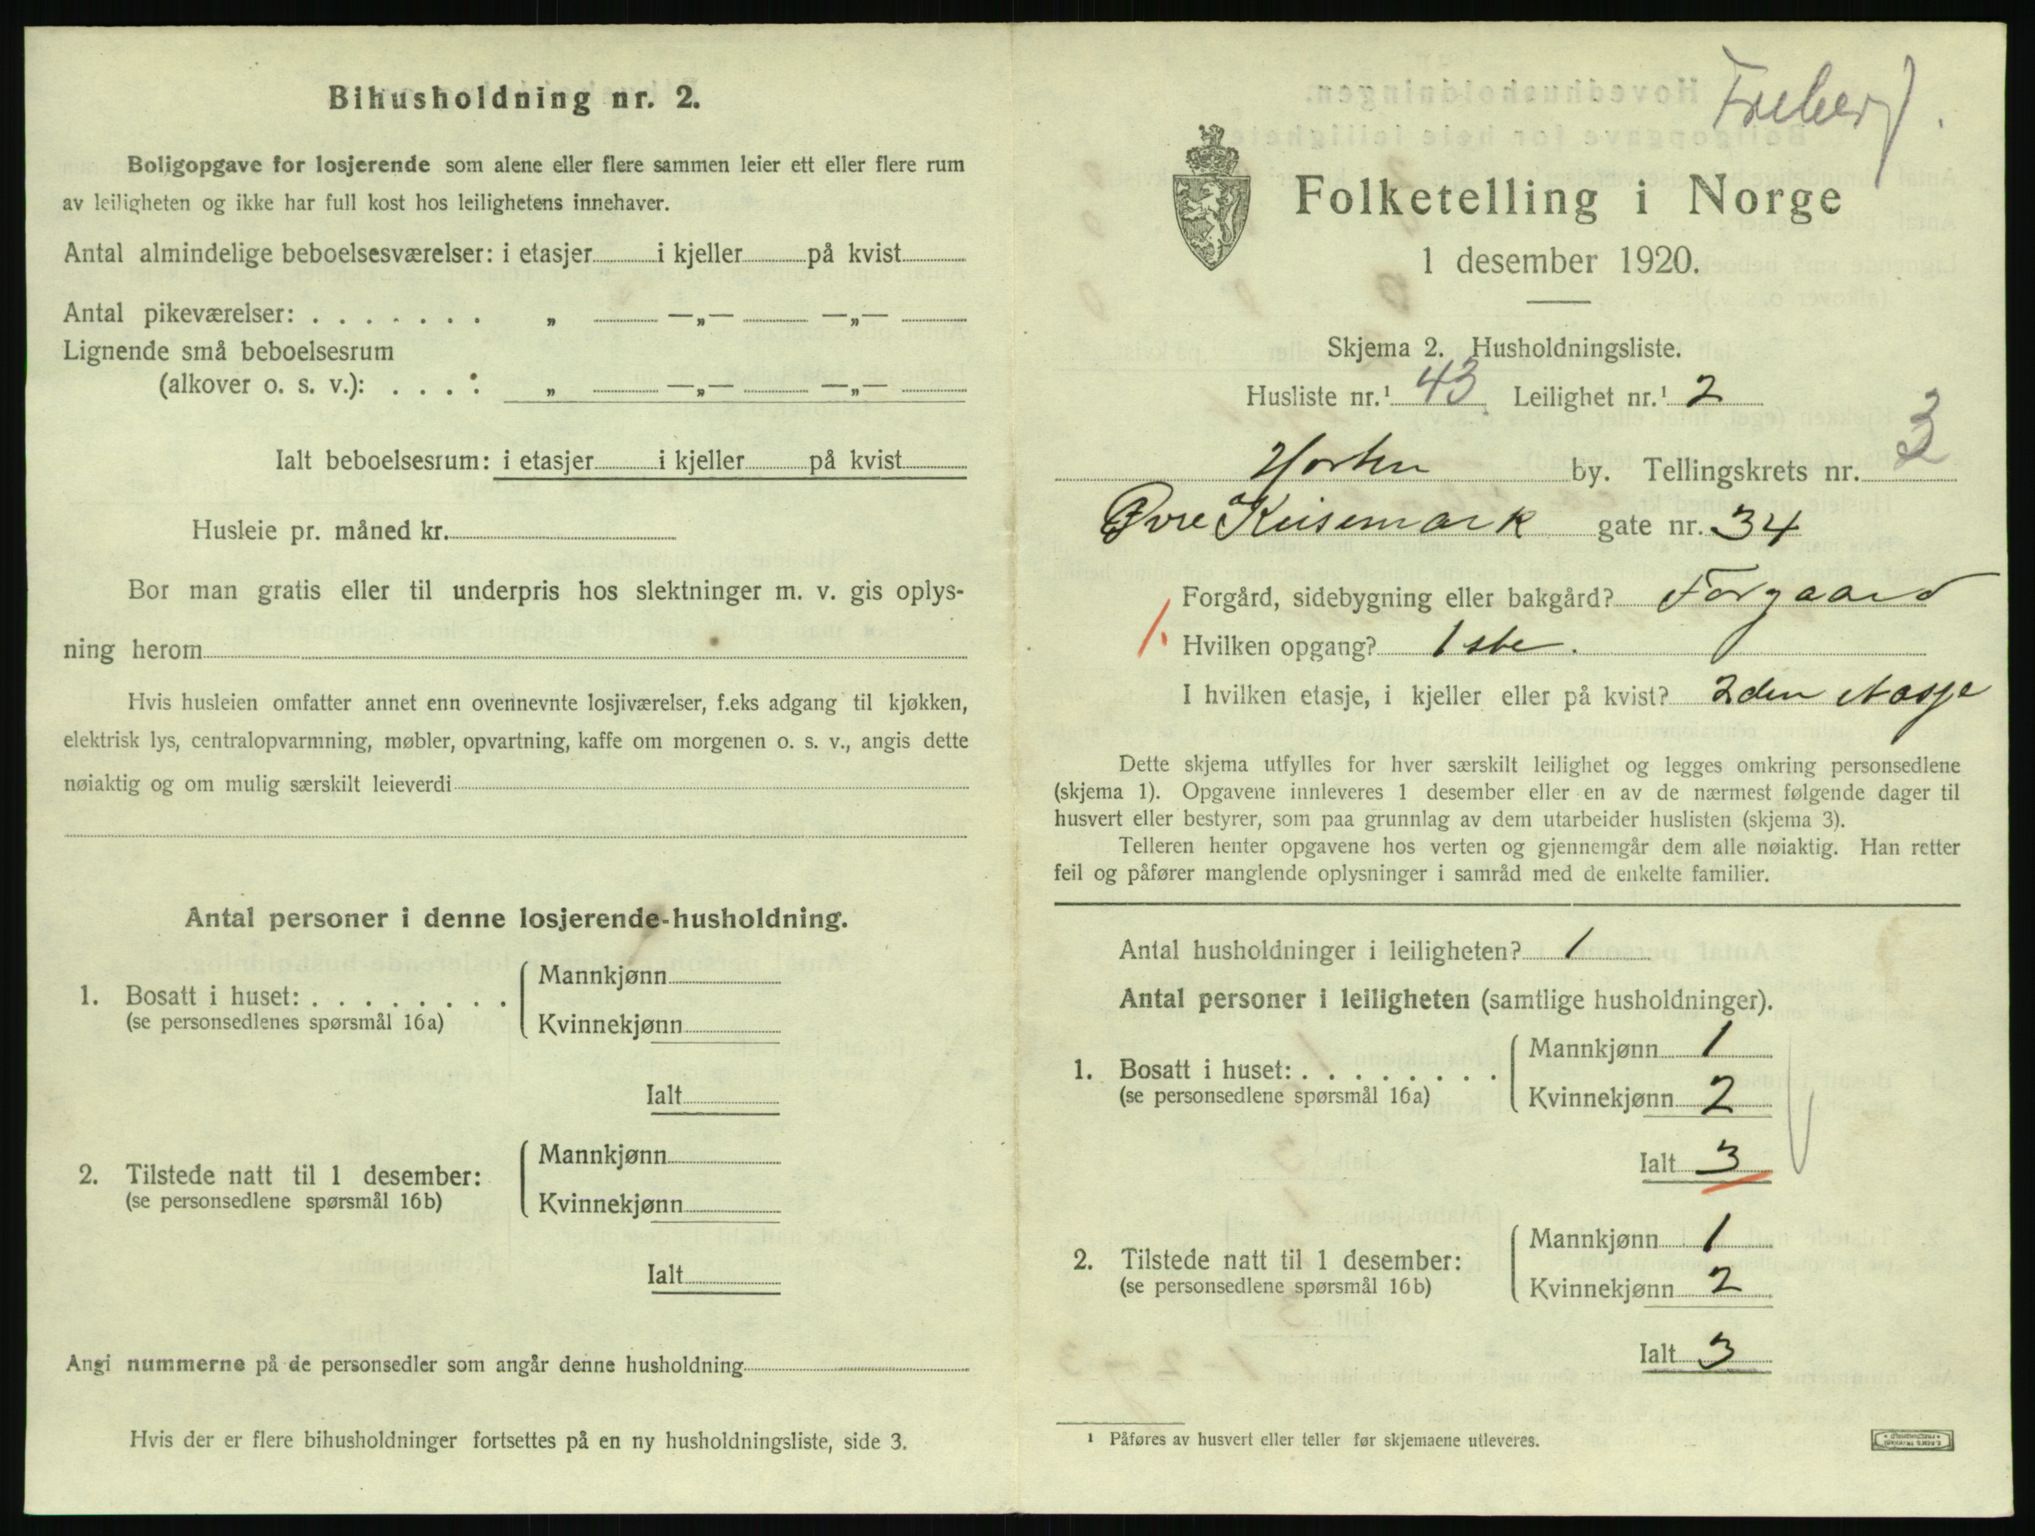 Bihusholdning nr. 2.
Boligopgave for losjerende som alene eller flere sammen leier ett eller flere rum
av leiligheten og ikke har full kost hos leilighetens innehaver.
Antal almindelige beboelsesværelser: i etasjer i kjeller på kvist
Antal pikeværelser: . . . . . . . „ —„— —„—
Lignende små beboelsesrum
(alkover o. s. v.): . . . . „ —„— —„—
Ialt beboelsesrum: i etasjer i kjeller på kvist
Husleie pr. måned kr.
Bor man gratis eller til underpris hos slektninger m. v. gis oplys-
ning herom
Hvis husleien omfatter annet enn ovennevnte losjiværelser, f.eks adgang til kjøkken,
elektrisk lys, centralopvarmning, møbler, opvartning, kaffe om morgenen o. s. v., angis dette
nøiaktig og om mulig særskilt leieverdi
Antal personer i denne losjerende-husholdning.
1. Bosatt i huset: . . . . . . . .
(se personsedlenes spørsmål 16a)
Mannkjønn
Kvinnekjønn
Ialt
2. Tilstede natt til 1 desember:
(se personsedlene spørsmål 16b)
Mannkjønn
Kvinnekjønn
Ialt
Angi nummerne på de personsedler som angår denne husholdning
Hvis der er flere bihusholdninger fortsettes på en ny husholdningsliste, side 3.
Freberg.
Folketelling i Norge
1 desember 1920.
Skjema 2. Husholdningsliste.
Husliste nr.¹ 43 Leilighet nr.¹ 2
Horten by. Tellingskrets nr. 3
Øvre Keisemark gate nr. 34
Forgård, sidebygning eller bakgård? Forgaard
1. Hvilken opgang? 1ste.
I hvilken etasje, i kjeller eller på kvist? 2den
Dette skjema utfylles for hver særskilt leilighet og legges omkring personsedlene
(skjema 1). Opgavene innleveres 1 desember eller en av de nærmest følgende dager til
husvert eller bestyrer, som paa grunnlag av dem utarbeider huslisten (skjema 3).
Telleren henter opgavene hos verten og gjennemgår dem alle nøiaktig. Han retter
feil og påfører manglende oplysninger i samråd med de enkelte familier.
Antal husholdninger i leiligheten? 1
Antal personer i leiligheten (samtlige husholdninger).
1. Bosatt i huset: . . . . . . . .
(se personsedlene spørsmål 16a)
Mannkjønn 1
Kvinnekjønn 2
Ialt 3
2. Tilstede natt til 1 desember:
(se personsedlene spørsmål 16b)
Mannkjønn 1
Kvinnekjønn 2
Ialt 3
¹ Påføres av husvert eller teller før skjemaene utleveres.